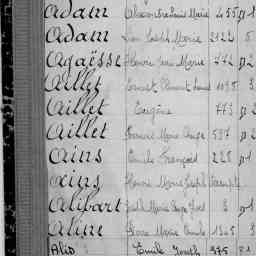 Adam Alexandre Louis Marie 455 D 1
Adam Léon Joseph Marie 2123 5
Agaësse Pierre Jean Marie 772 D 2
Aillet Ernest Clément Louis 1095 3
Aillet Eugène 773 D 2
Aillet Marie Ange 537 D 2
Ains Emile François 228 D 1
Ains Marie Joseph
Alibart Marie Ange 3 D 1
Aline Pierre Marie Emile 1305 3
Alio Emile Joseph 975 D 1